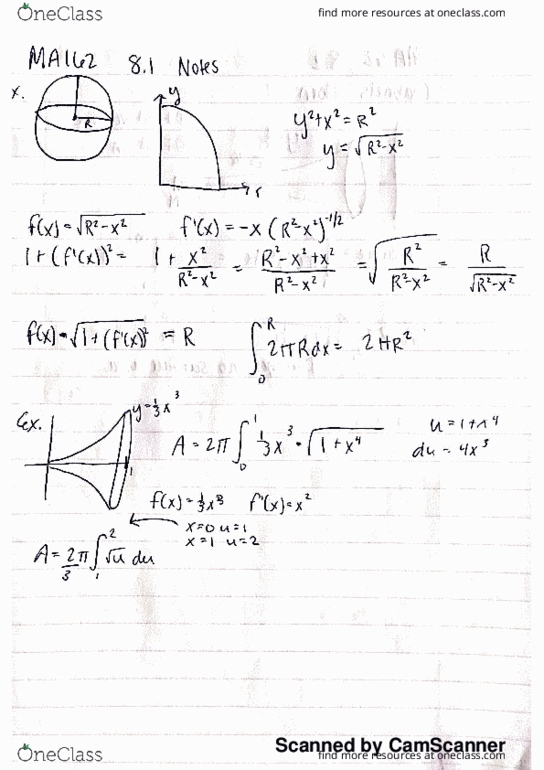 OneClass
find more resources at oneclass.com
MA162 8.1 Notes
x.
R
y
r
y²+x² = R²
y = √R²-x²
f(x) = √R²-x² f'(x) = -x (R²-x²)^-1/2
1 + (f'(x))² = 1 + x²/R²-x² = R²-x²+x²/R²-x² = √R²/R²-x² = R/√R²-x²
f(x) • √1+(f'(x))² = R ∫₀ᴿ 2πRdx = 2πR²
Ex.
y=⅓x³
1
A = 2π ∫₀¹ ⅓x³ • √1+x⁴
u = 1+x⁴
du = 4x³
f(x) = ⅓x³ f'(x) = x²
x=0 u=1
x=1 u=2
A = 2π/3 ∫₁² √u du
Scanned by CamScanner
OneClass
find more resources at oneclass.com